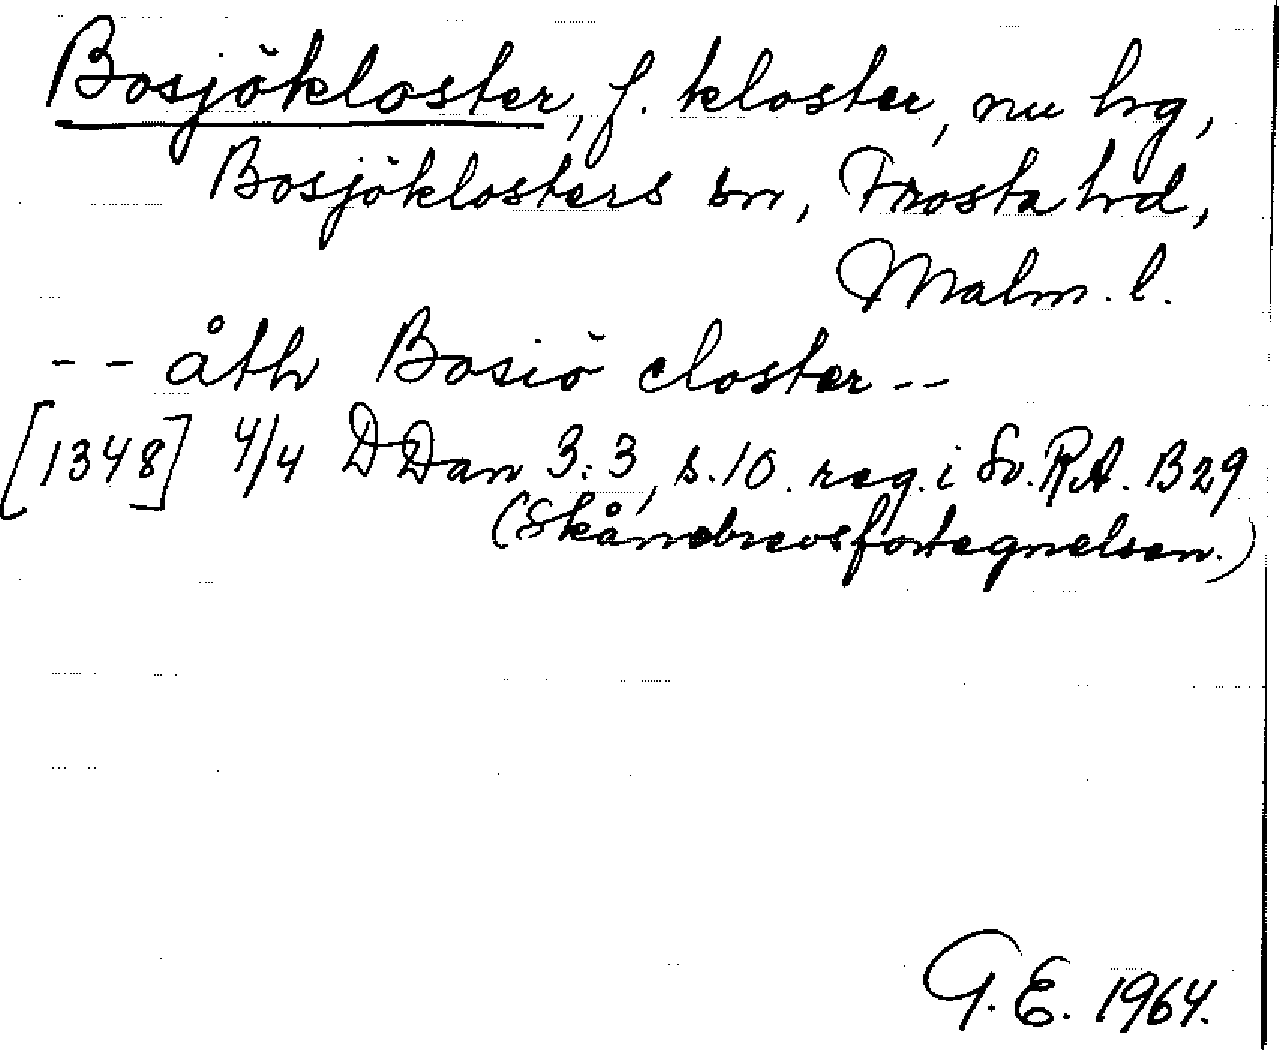 Bosjökloster, f. kloster, nu hrg,
Bosjöklosters sn, Frosta hrd,
Malm. l.
-- åth Bosiö closter --
[1348] 4/4 DDan 3:3, s.10. reg. i Sv. RA. B29
(Skånebrevsfortegnelsen.)
G.E. 1964.